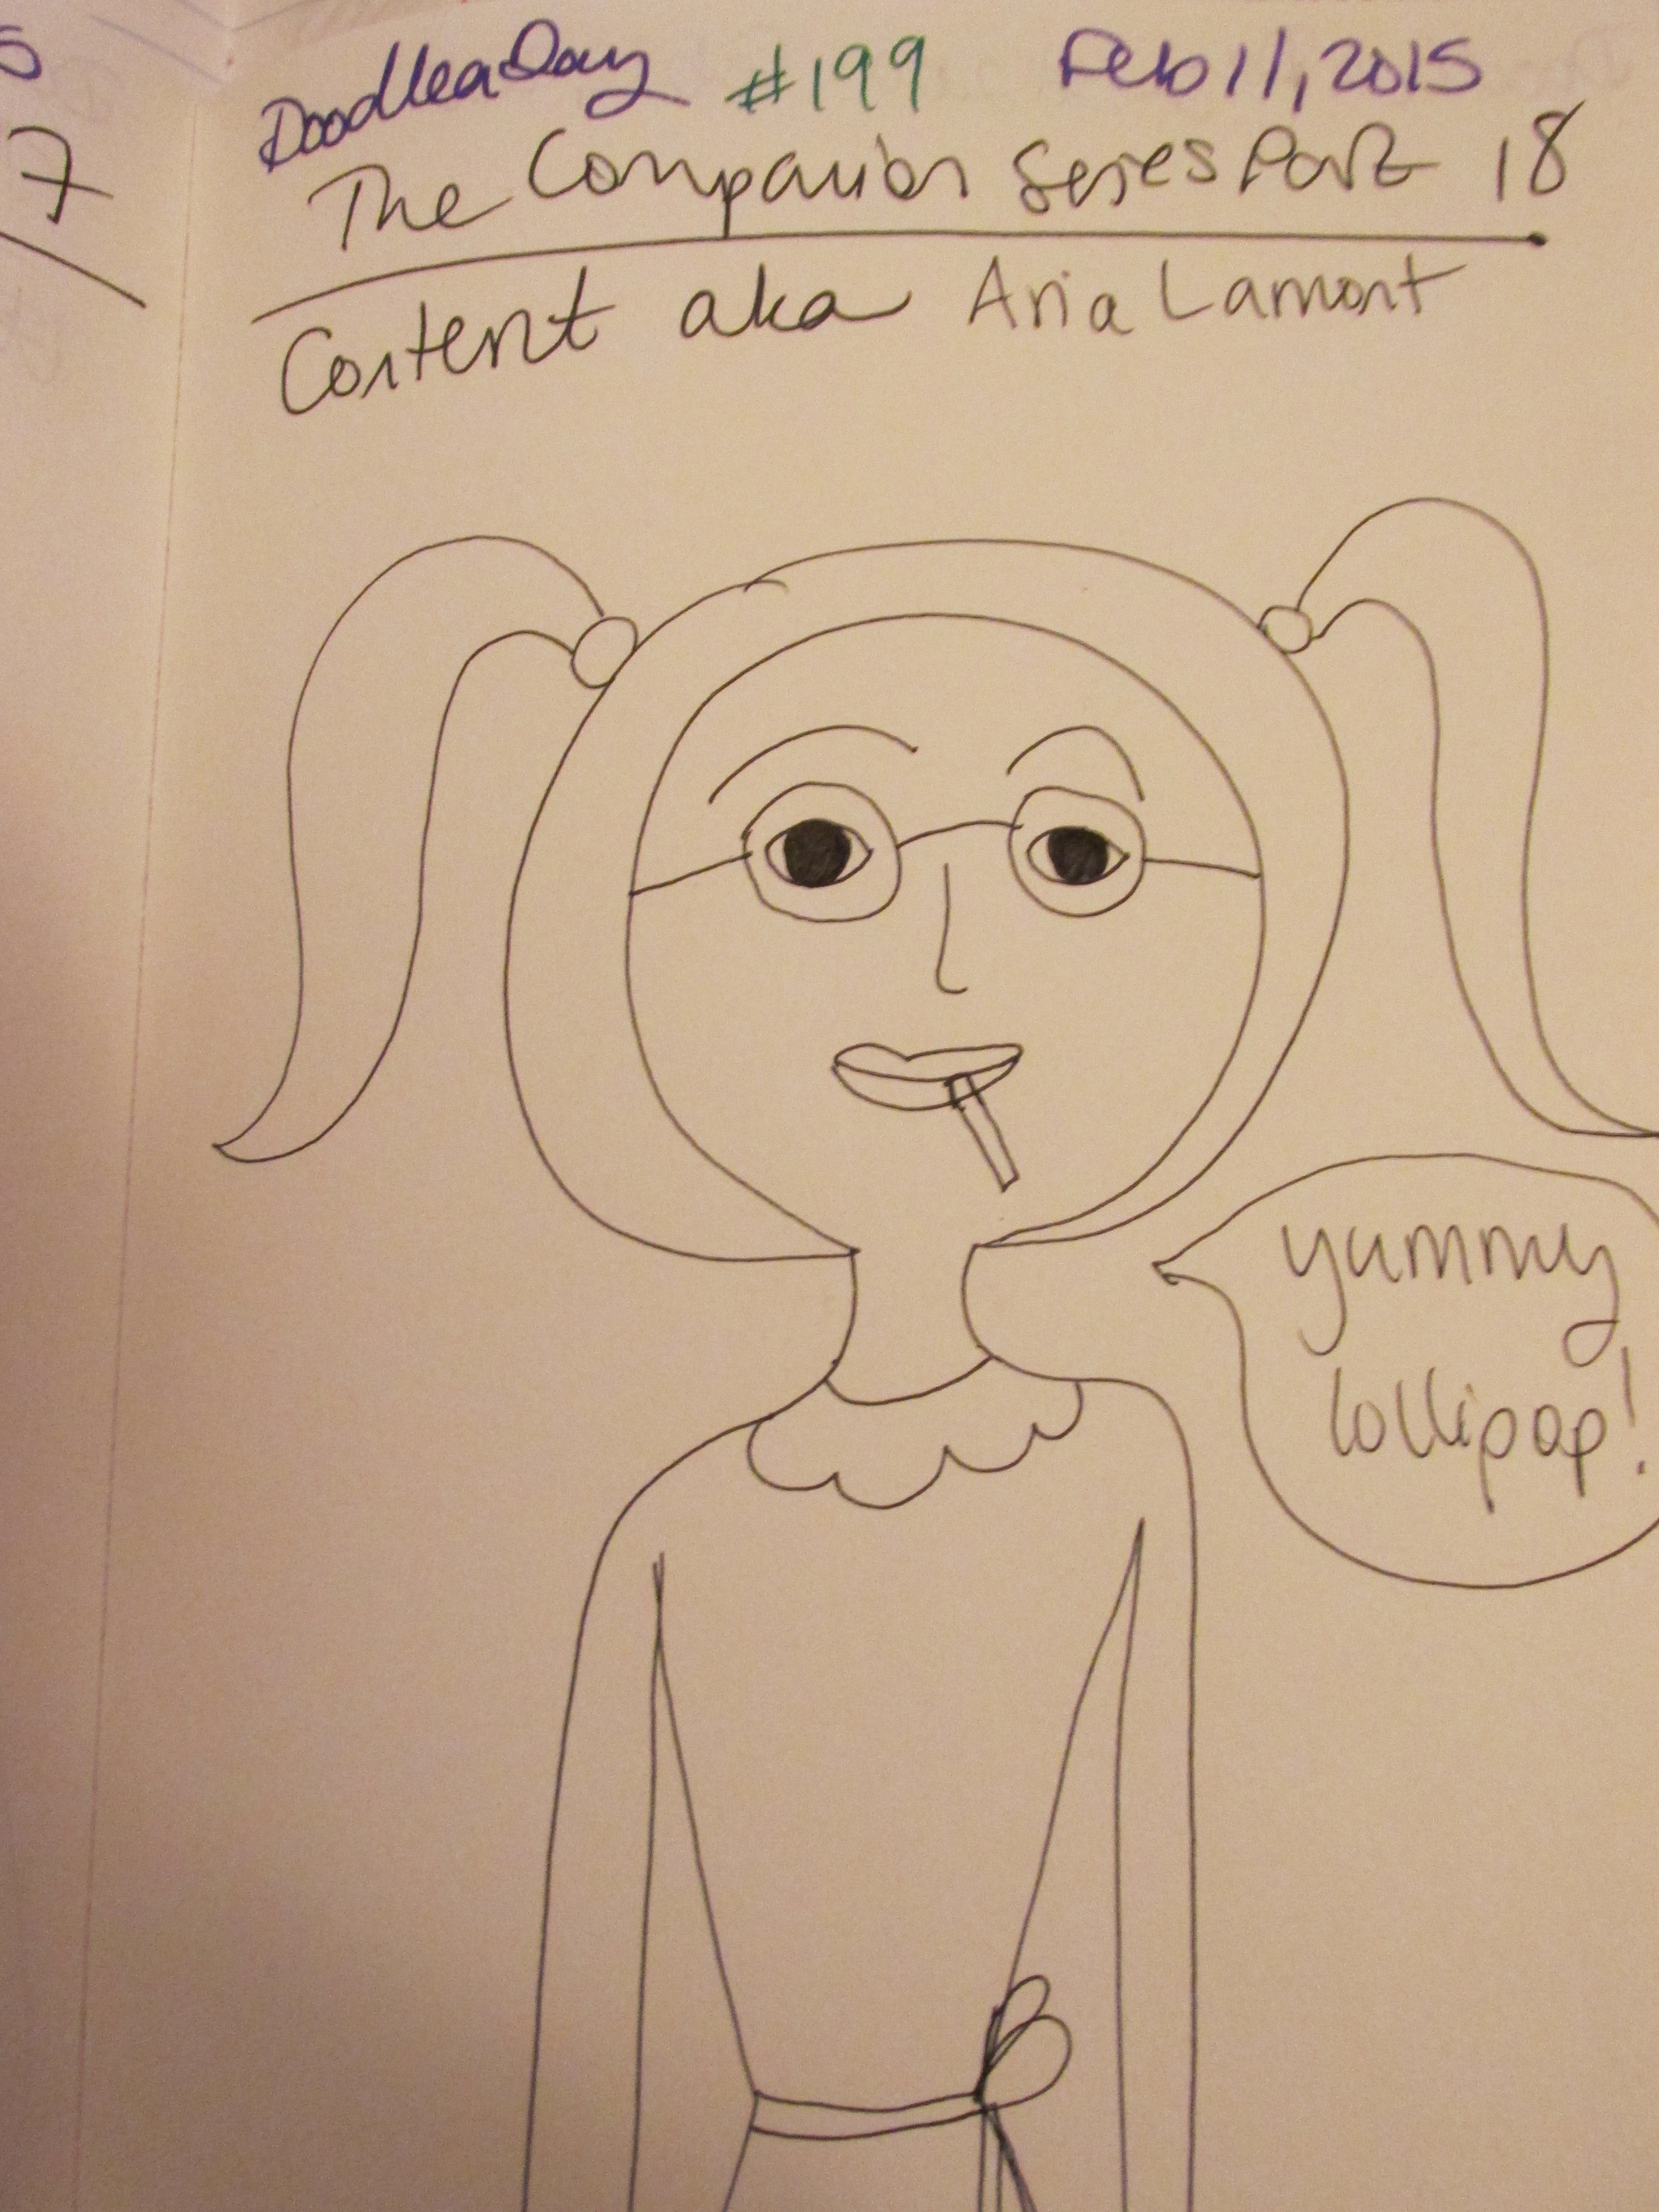 Doodle a Day #199 Feb 11, 2015
The Companion Series Part 18
Content aka Aria Lamont
yummy
lollipop!
7